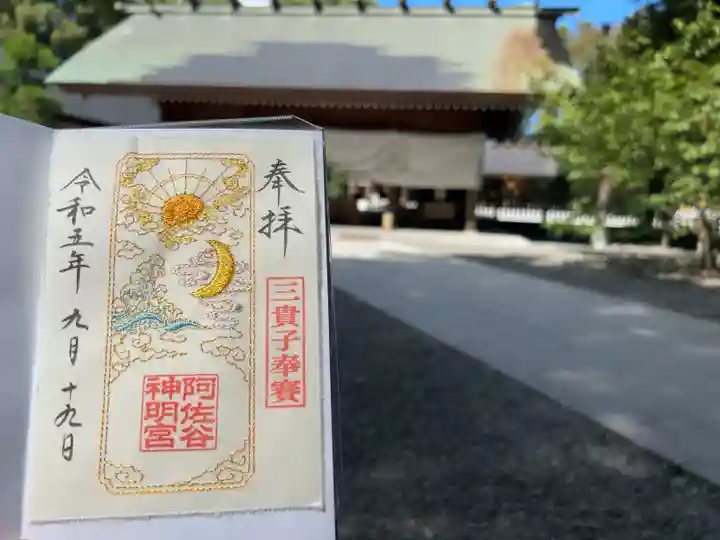 奉拝
三貴子奉賽
阿佐谷
神明宮
令和五年九月十九日